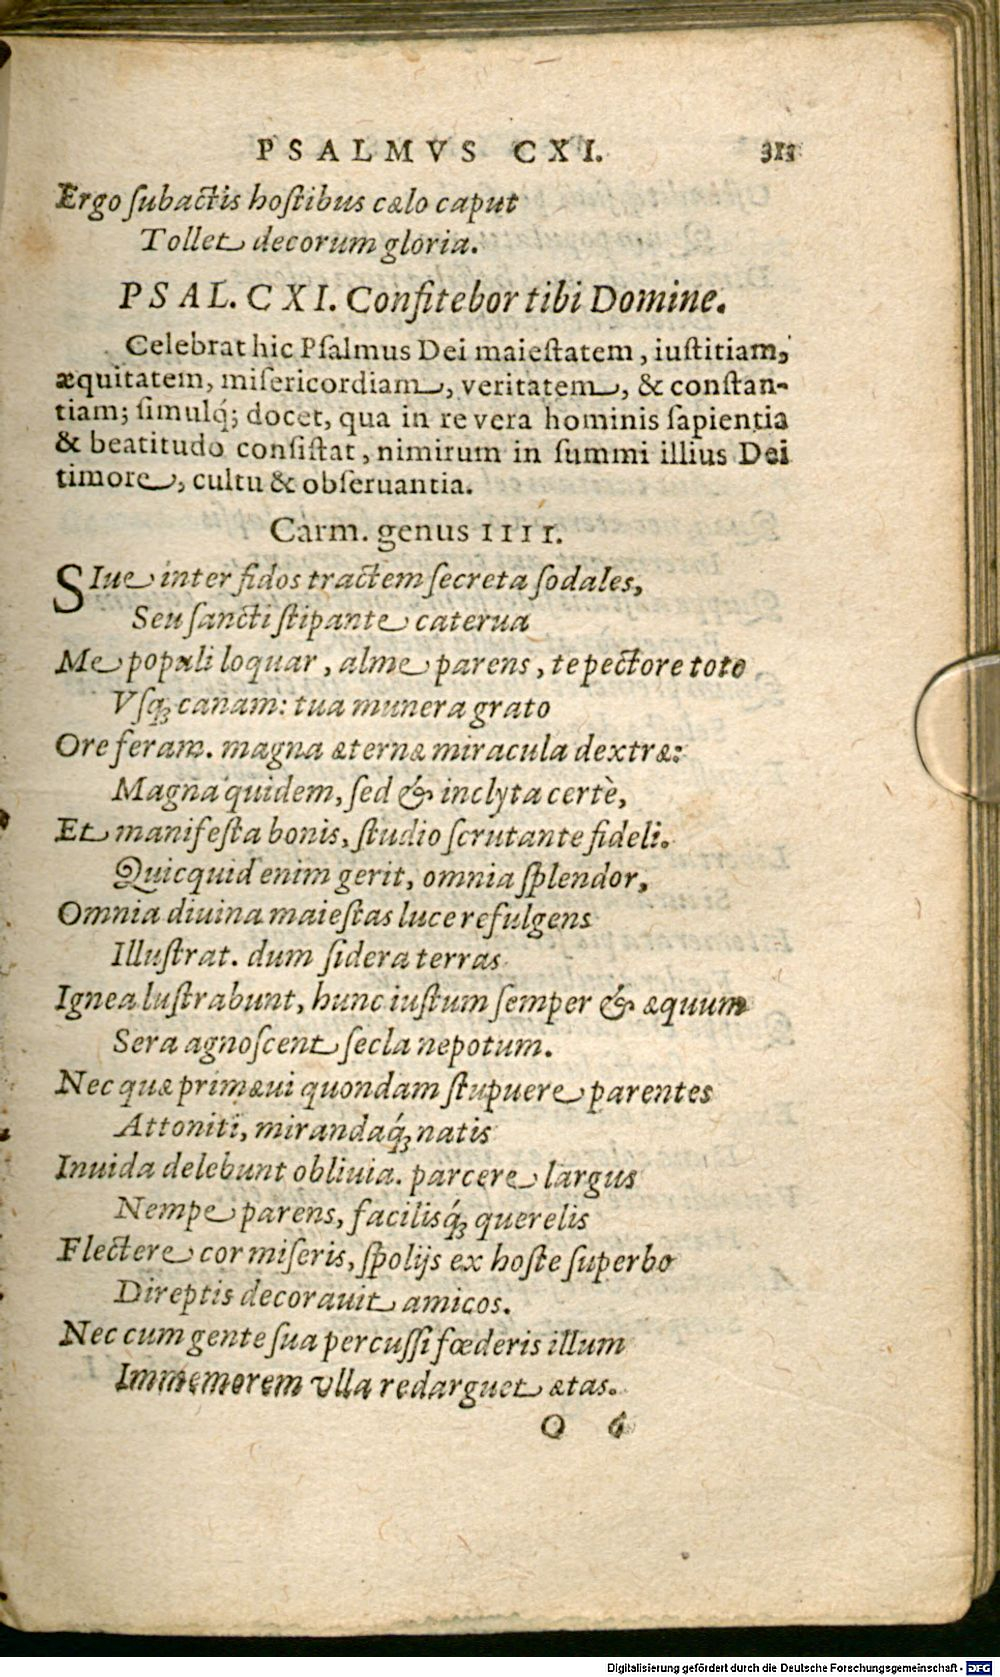 PSALMVS CXI.
Ergo ſubactis hoſtibus cælo caput
Tollet decorum gloria.
PSAL. CXI. Confitebor tibi Domine.
Celebrat hic Pſalmus Dei maieſtatem, iuſtitiam,
æquitatem, miſericordiam, veritatem, & conſtan-
tiam; ſimulq́; docet, qua in re vera hominis ſapientia
& beatitudo conſiſtat, nimirum in ſummi illius Dei
timore, cultu & obſeruantia.
Carm. genus IIII.
SIue inter fidos tractem ſecreta ſodales,
Seu ſancti ſtipante caterua
Me populi loquar, alme parens, te pectore toto
Vſq; canam: tua munera grato
Ore feram. magna æternæ miracula dextræ:
Magna quidem, ſed & inclyta certè,
Et manifeſta bonis, ſtudio ſcrutante fideli.
Quicquid enim gerit, omnia ſplendor,
Omnia diuina maieſtas luce refulgens
Illuſtrat. dum ſidera terras
Ignea luſtrabunt, hunc iuſtum ſemper & æquum
Sera agnoſcent ſecla nepotum.
Nec quæ primæui quondam ſtupuere parentes
Attoniti, mirandaq́; natis
Inuida delebunt obliuia. parcere largus
Nempe parens, faciliſq́; querelis
Flectere cor miſeris, ſpolijs ex hoſte ſuperbo
Direptis decorauit amicos.
Nec cum gente ſua percuſſi fœderis illum
Immemorem vlla redarguet ætas.
O 6
Digitalisierung gefördert durch die Deutsche Forschungsgemeinschaft - DFG